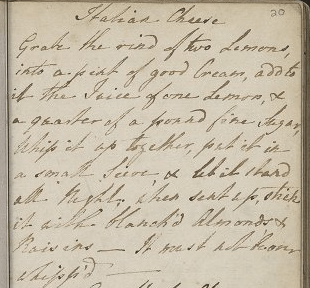 Italian Cheese
20
Grate the rind of two Lemons,
into a pint of good Cream, add to
it the Juice of one Lemon, &
a quarter of a pound fine Sugar,
Whip it up together, put it in
a small Sieve, & let it stand
all Night, when sent up, stick
it with blanch'd Almonds &
Raisins — It must not be over
whipp'd —